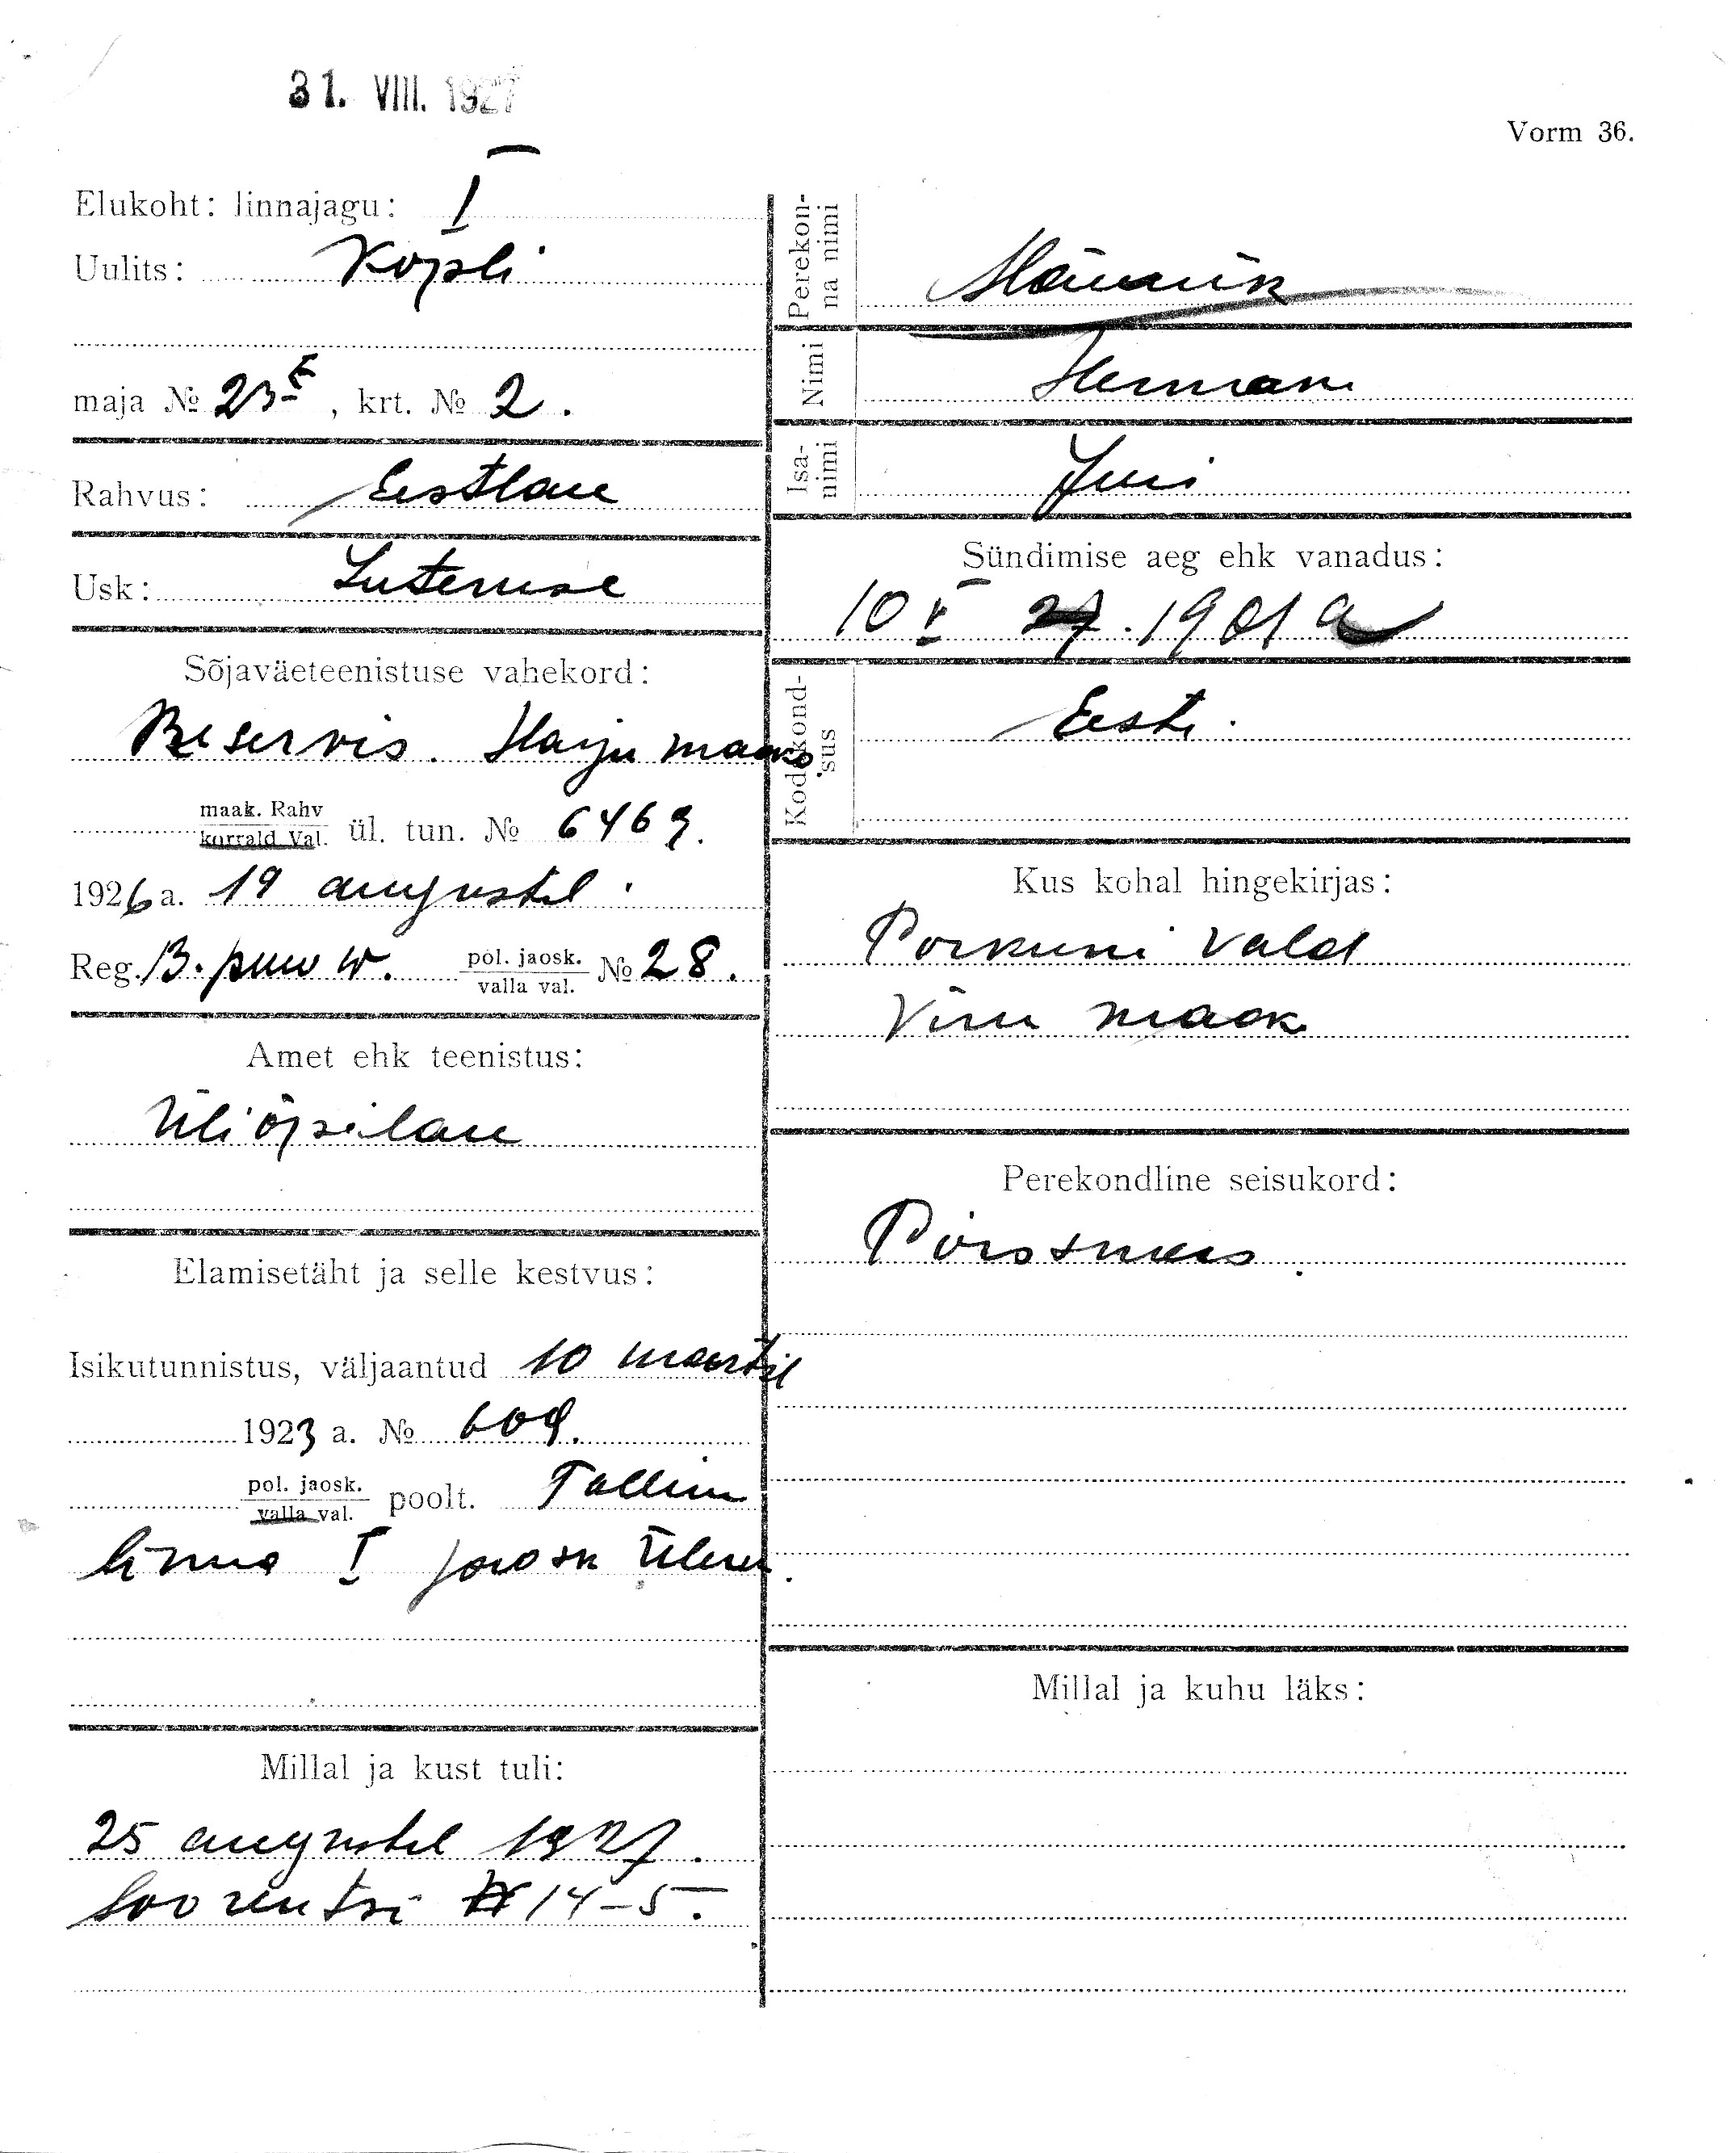 31. VIII. 1927
Vorm 36.
Elukoht: linnajagu: I
Uulits: Kopli
maja № 23, krt. № 2.
Rahvus: Eestlane
Usk: Luteruse
Sõjaväeteenistuse vahekord:
Reservis. Harju maak.
maak. Rahv
korrald Val. ül. tun. № 6469.
1926 a. 19 augustil.
Reg. pol. jaosk. № 28.
valla val.
Amet ehk teenistus:
Üliõpilane
Elamisetäht ja selle kestvus:
Isikutunnistus, väljaantud 10 maartsil
1923 a. № 609.
pol. jaosk.
valla val. poolt. Tallinn
linna I jaosk
Millal ja kust tuli:
25 augustil 1927.
14-5.
Perekonna nimi
Nimi Herman
Isanimi Juri
Sündimise aeg ehk vanadus:
10 V 1901 a
Kodakondsus Eesti.
Kus kohal hingekirjas:
Porkuni vald
Viru maak
Perekondline seisukord:
Millal ja kuhu läks: